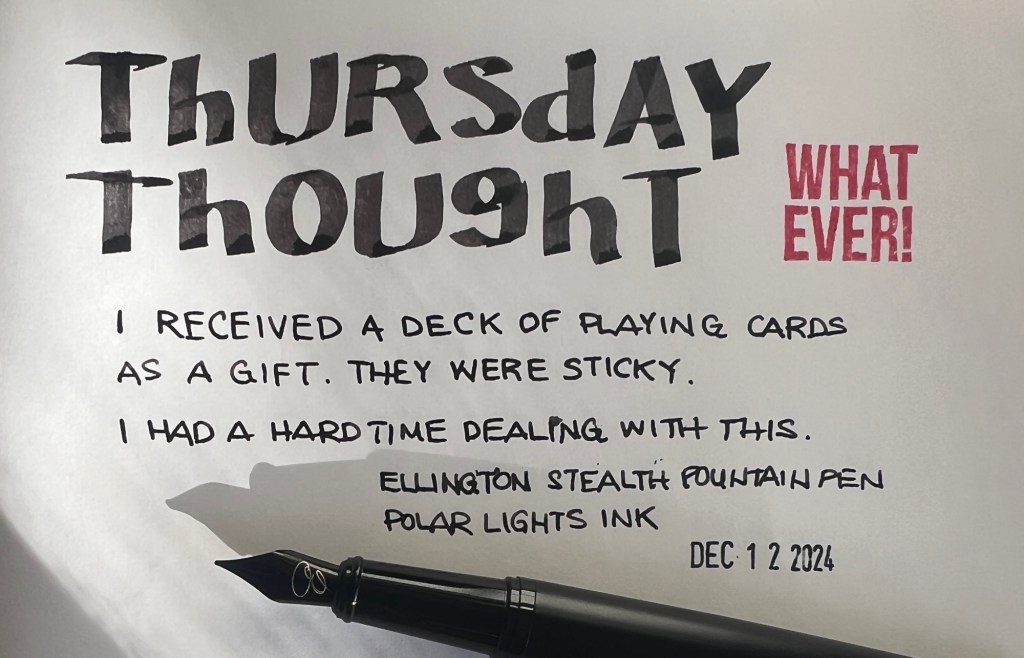 ThURSdAY
ThOUghT
WHAT
EVER!
I RECEIVED A DECK OF PLAYING CARDS
AS A GIFT. THEY WERE STICKY.
I HAD A HARD TIME DEALING WITH THIS.
ELLINGTON STEALTH FOUNTAIN PEN
POLAR LIGHTS INK
DEC 12 2024